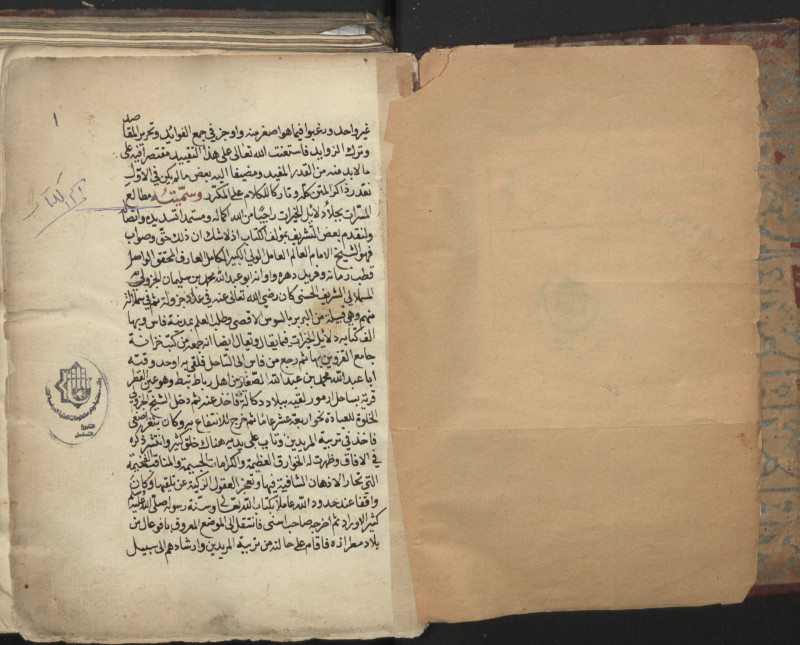 ١
صد
غير واحد ورغبوا فيما هو اصغر منه واوجز في جمع الفوائد وتحرير المقا
وترك الزوايد فاستعنت الله تعالى على هذا التقييد مقتصرا فيه على
ما لا بد منه من القدر المفيد ومضيفا اليه بعض ما لم يكن في الاول
نقد ذاكرا المتن كله وتاركا للكلام على المكرر وسميته مطالع
المسرات بجلاء دلائل الخيرات راجيا من الله اكماله ومستمدا تسديده وايضا
ولنقدم بعض التشريف بمؤلف الكتاب اذ لا شك ان ذلك حق وصواب
فهو الشيخ الامام العالم العامل الولي الكبير الكامل العارف المحقق الواصل
قطب زمانه وفريد دهره واوانه ابو عبد الله محمد بن سليمان الجزولي
السملالي الشريف الحسني كان رضي الله تعالى عنه في عداد جزولة ثم في سملالة
منهم وهي قبيلة من البربر بالسوس الاقصى وطلب العلم بمدينة فاس وبها
الف كتابه دلائل الخيرات فيما يقال ويقال ايضا انه جمعه من كتب خزانة
جامع القرويين بها ثم رجع من فاس الى الساحل فلقي به اوحد وقته
ابا عبد الله محمد بن عبد الله الصغار من اهل رباط تيط وهو عين الفطر
قرية بساحل ازمور لقيه ببلاد دكالة فاخذ عنه ثم دخل الشيخ الجزولي
الخلوة للعبادة نحو اربعة عشر عاما ثم خرج للانتفاع به وكان بثغر اسفي
فاخذ في تربية المريدين وتاب على يديه هناك خلق كثير وانتشر ذكره
في الافاق وظهرت له الخوارق العظيمة والكرامات الجسيمة والمناقب الفخيمة
التي تحار الاذهان الصافية فيها وتعجز العقول الزكية عن تلقيها وكان
واقفا عند حدود الله عاملا بكتاب الله تعالى وسنة رسوله صلى الله عليه
كثير الاوراد ثم اخرجه صاحب اسفي فانتقل الى الموضع المعروف بافوغال من
بلاد مطرازه فاقام على حالته من تربية المريدين وارشادهم الى سبيل